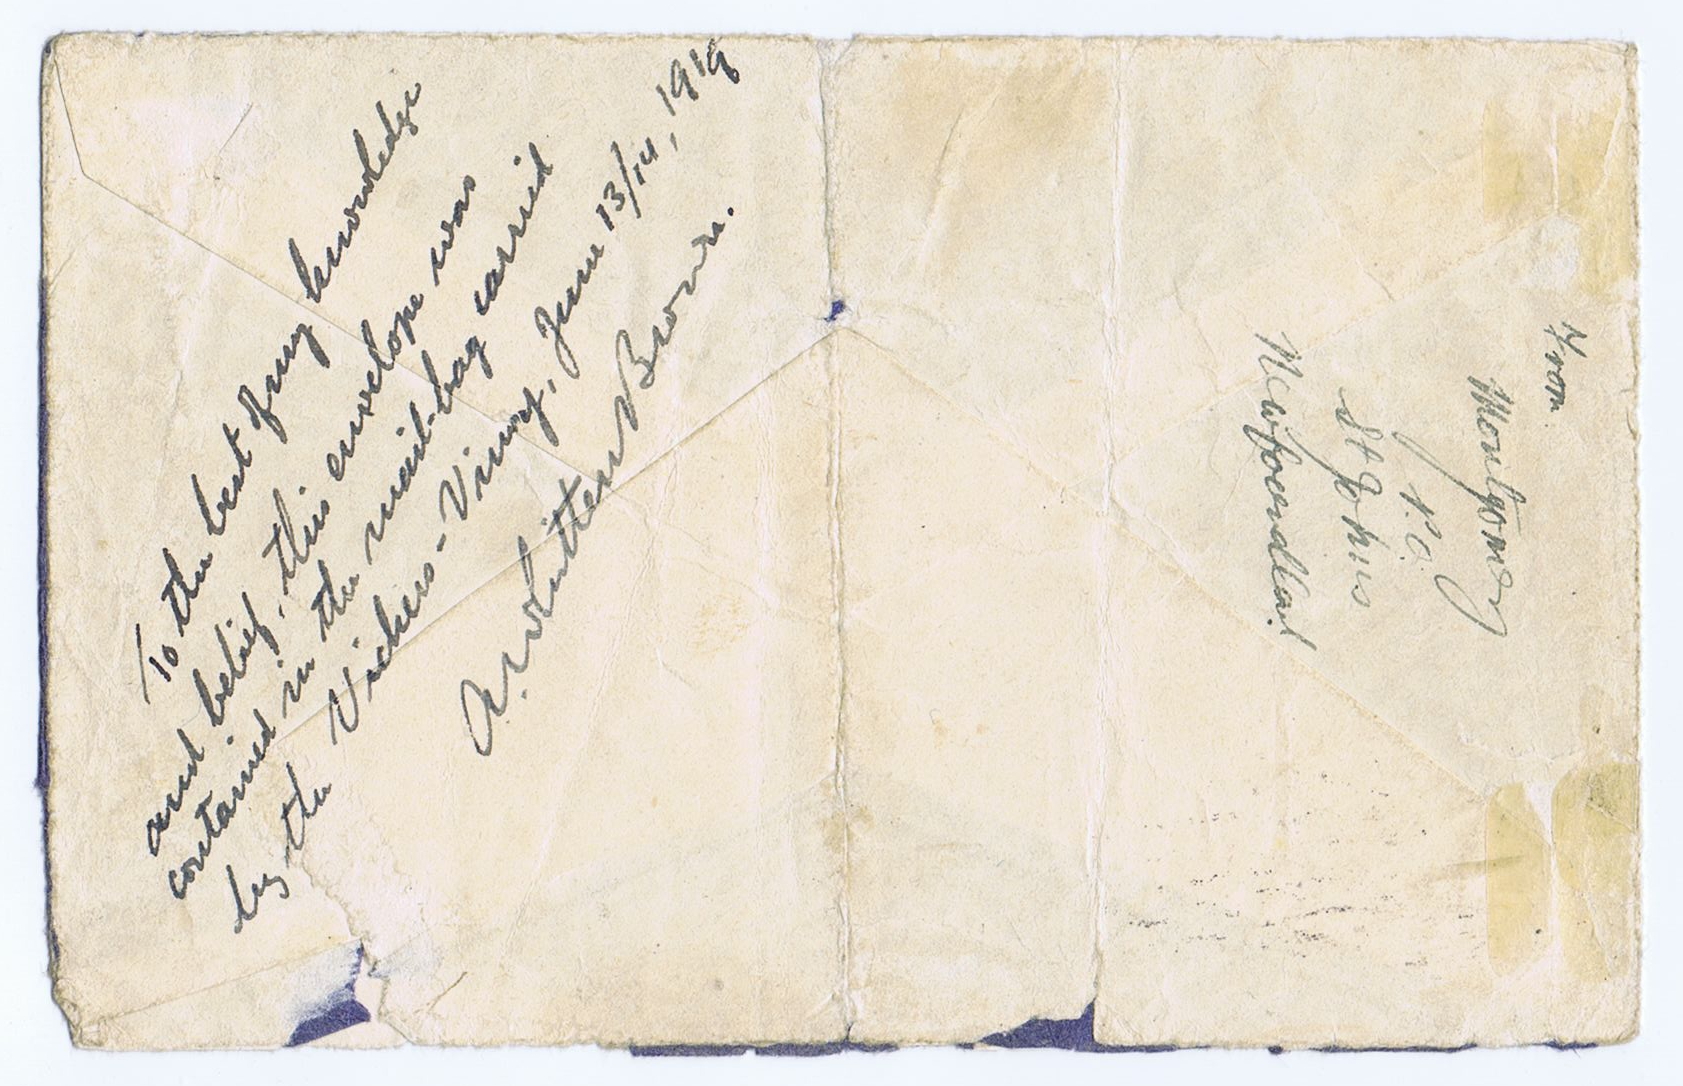 To the best of my knowledge
and belief, this envelope was
contained in the mail-bag carried
by the Vickers-Vimy, June 13/14, 1919
A. Whitten Brown.
From
Montgomery
P.O.
St Johns
Newfoundland